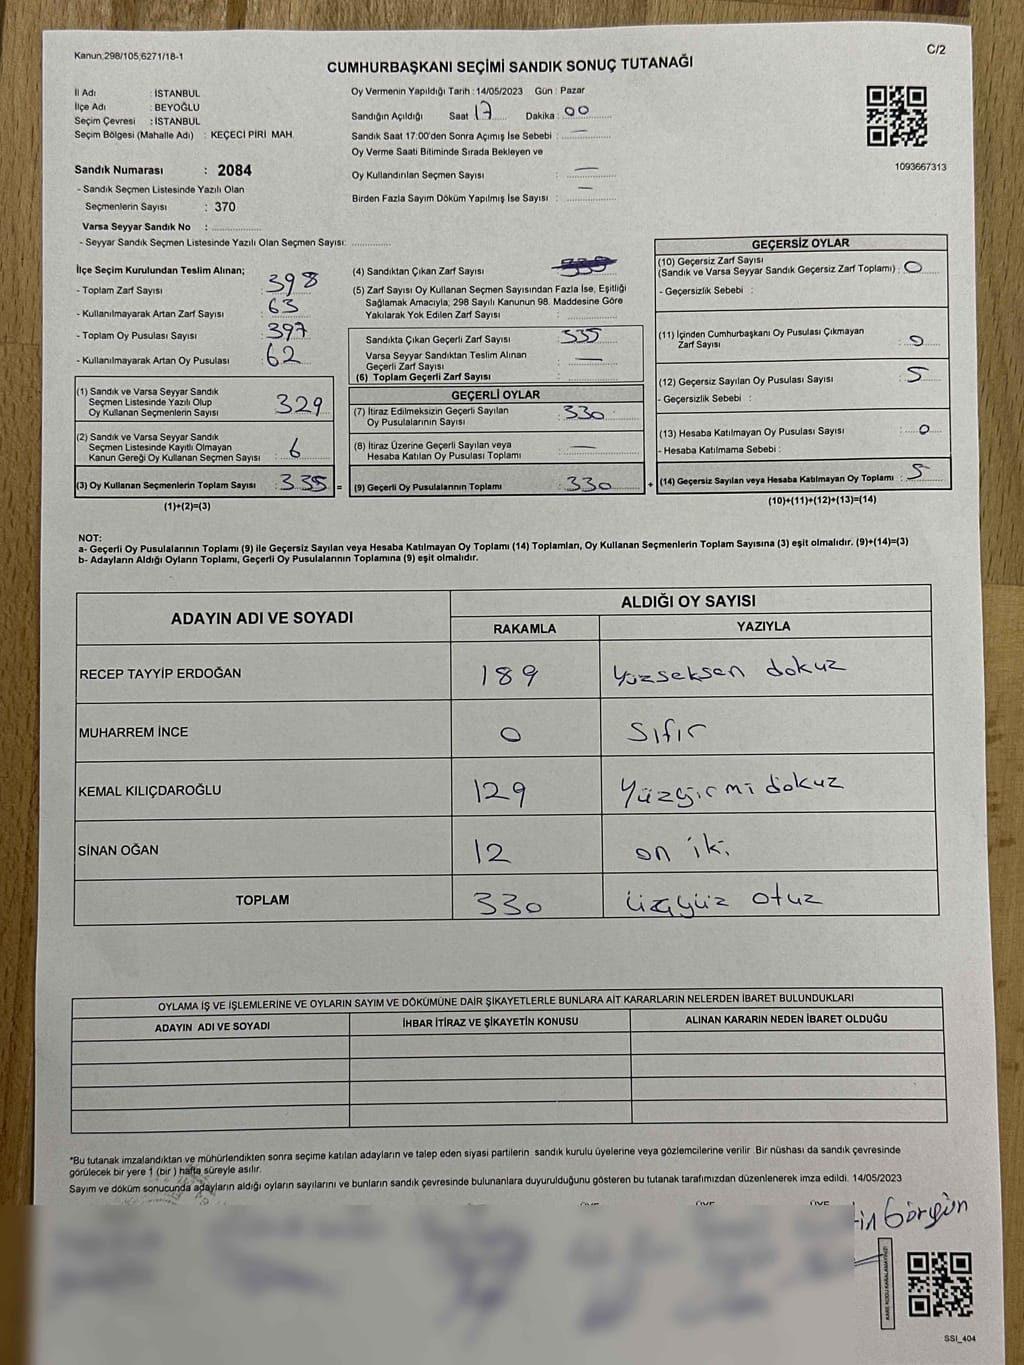 Kanun;298/105;6271/18-1
C/2
CUMHURBAŞKANI SEÇİMİ SANDIK SONUÇ TUTANAĞI
İl Adı : İSTANBUL
İlçe Adı : BEYOĞLU
Seçim Çevresi : İSTANBUL
Seçim Bölgesi (Mahalle Adı) : KEÇECİ PİRİ MAH.
Oy Vermenin Yapıldığı Tarih : 14/05/2023 Gün : Pazar
Sandığın Açıldığı Saat 17 Dakika : 00
Sandık Saat 17:00'den Sonra Açımış İse Sebebi : —
Oy Verme Saati Bitiminde Sırada Bekleyen ve
Oy Kullandırılan Seçmen Sayısı : —
Birden Fazla Sayım Döküm Yapılmış İse Sayısı : —
1093667313
Sandık Numarası : 2084
- Sandık Seçmen Listesinde Yazılı Olan
Seçmenlerin Sayısı : 370
Varsa Seyyar Sandık No :
- Seyyar Sandık Seçmen Listesinde Yazılı Olan Seçmen Sayısı:
İlçe Seçim Kurulundan Teslim Alınan;
- Toplam Zarf Sayısı : 398
- Kullanılmayarak Artan Zarf Sayısı : 63
- Toplam Oy Pusulası Sayısı : 397
- Kullanılmayarak Artan Oy Pusulası : 62
(1) Sandık ve Varsa Seyyar Sandık
Seçmen Listesinde Yazılı Olup
Oy Kullanan Seçmenlerin Sayısı : 329
(2) Sandık ve Varsa Seyyar Sandık
Seçmen Listesinde Kayıtlı Olmayan
Kanun Gereği Oy Kullanan Seçmen Sayısı : 6
(3) Oy Kullanan Seçmenlerin Toplam Sayısı : 335 =
(1)+(2)=(3)
(4) Sandıktan Çıkan Zarf Sayısı
(5) Zarf Sayısı Oy Kullanan Seçmen Sayısından Fazla İse, Eşitliği
Sağlamak Amacıyla; 298 Sayılı Kanunun 98. Maddesine Göre
Yakılarak Yok Edilen Zarf Sayısı :
Sandıkta Çıkan Geçerli Zarf Sayısı : 335
Varsa Seyyar Sandıktan Teslim Alınan
Geçerli Zarf Sayısı : —
(6) Toplam Geçerli Zarf Sayısı :
GEÇERLİ OYLAR
(7) İtiraz Edilmeksizin Geçerli Sayılan
Oy Pusulalarının Sayısı : 330
(8) İtiraz Üzerine Geçerli Sayılan veya
Hesaba Katılan Oy Pusulası Toplamı : —
(9) Geçerli Oy Pusulalarının Toplamı : 330 +
GEÇERSİZ OYLAR
(10) Geçersiz Zarf Sayısı
(Sandık ve Varsa Seyyar Sandık Geçersiz Zarf Toplamı) : 0
- Geçersizlik Sebebi :
(11) İçinden Cumhurbaşkanı Oy Pusulası Çıkmayan
Zarf Sayısı : 0
(12) Geçersiz Sayılan Oy Pusulası Sayısı : 5
- Geçersizlik Sebebi :
(13) Hesaba Katılmayan Oy Pusulası Sayısı : 0
- Hesaba Katılmama Sebebi :
(14) Geçersiz Sayılan veya Hesaba Katılmayan Oy Toplamı : 5
(10)+(11)+(12)+(13)=(14)
NOT:
a- Geçerli Oy Pusulalarının Toplamı (9) ile Geçersiz Sayılan veya Hesaba Katılmayan Oy Toplamı (14) Toplamları, Oy Kullanan Seçmenlerin Toplam Sayısına (3) eşit olmalıdır. (9)+(14)=(3)
b- Adayların Aldığı Oyların Toplamı, Geçerli Oy Pusulalarının Toplamına (9) eşit olmalıdır.
ADAYIN ADI VE SOYADI ALDIĞI OY SAYISI
RAKAMLA YAZIYLA
RECEP TAYYİP ERDOĞAN 189 Yüzseksen dokuz
MUHARREM İNCE 0 Sıfır
KEMAL KILIÇDAROĞLU 129 Yüzyirmi dokuz
SİNAN OĞAN 12 on iki
TOPLAM 330 üçyüz otuz
OYLAMA İŞ VE İŞLEMLERİNE VE OYLARIN SAYIM VE DÖKÜMÜNE DAİR ŞİKAYETLERLE BUNLARA AİT KARARLARIN NELERDEN İBARET BULUNDUKLARI
ADAYIN ADI VE SOYADI İHBAR İTİRAZ VE ŞİKAYETİN KONUSU ALINAN KARARIN NEDEN İBARET OLDUĞU
*Bu tutanak imzalandıktan ve mühürlendikten sonra seçime katılan adayların ve talep eden siyasi partilerin sandık kurulu üyelerine veya gözlemcilerine verilir .Bir nüshası da sandık çevresinde
görülecek bir yere 1 (bir ) hafta süreyle asılır.
Sayım ve döküm sonucunda adayların aldığı oyların sayılarını ve bunların sandık çevresinde bulunanlara duyurulduğunu gösteren bu tutanak tarafımızdan düzenlenerek imza edildi. 14/05/2023
Görgün
KARE KODU KARALAMAYINIZ!
SSI_404